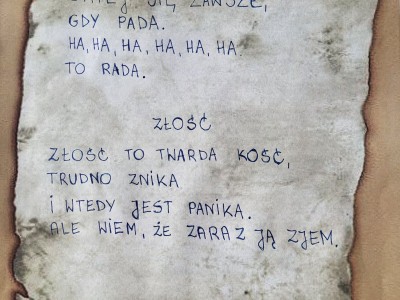 SIĘ ZAWSZE,
GDY PADA.
HA, HA, HA, HA, HA, HA.
TO RADA.
ZŁOŚĆ
ZŁOŚĆ TO TWARDA KOŚĆ,
TRUDNO ZNIKA
I WTEDY JEST PANIKA.
ALE WIEM, ŻE ZARAZ JĄ ZJEM.